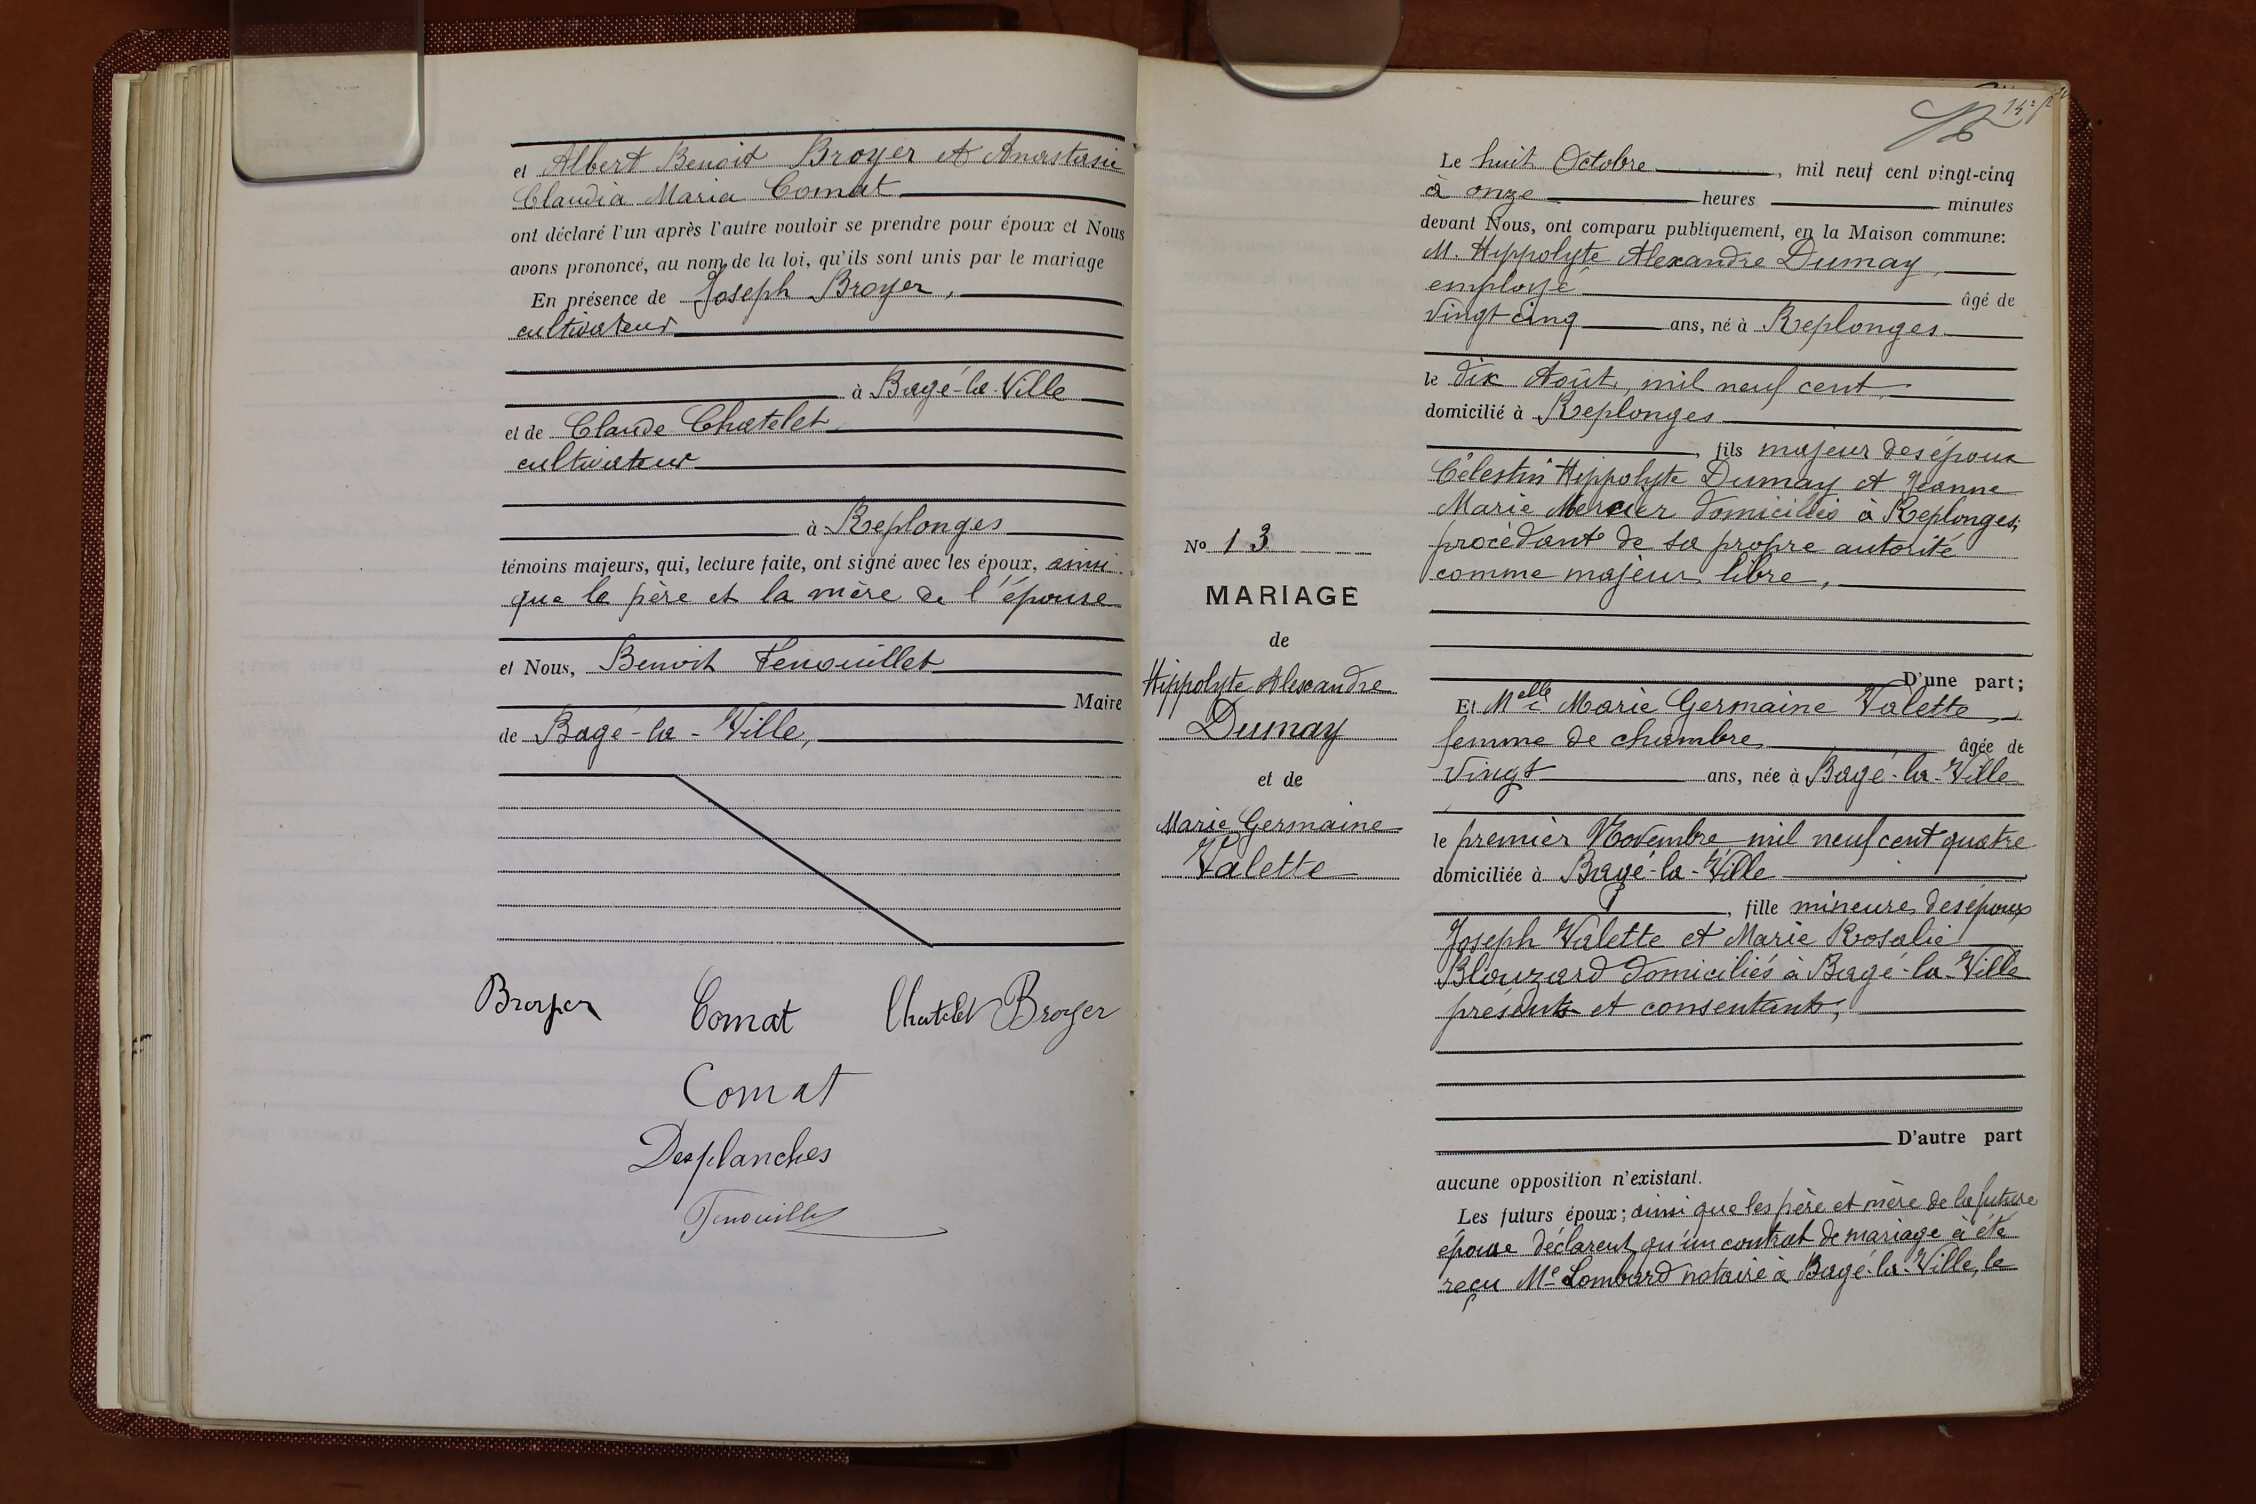 et Albert Benoit Broyer et Anastasie
Claudia Maria Comat
ont déclaré l'un après l'autre vouloir se prendre pour époux et Nous
avons prononcé, au nom de la loi, qu'ils sont unis par le mariage
En présence de Joseph Broyer,
cultivateur
à Bagé-la-Ville
et de Claude Chatelet
cultivateur
à Replonges
témoins majeurs, qui, lecture faite, ont signé avec les époux, ainsi
que le père et la mère de l'épouse
et Nous, Benoit Fenouillet
Maire
de Bagé-la-Ville,
Broyer Comat Chatelet Broyer
Comat
Desplanches
Fenouillet
Le huit Octobre, mil neuf cent vingt-cinq
à onze heures minutes
devant Nous, ont comparu publiquement, en la Maison commune:
M. Hippolyte Alexandre Dumay,
employé âgé de
vingt cinq ans, né à Replonges
le dix Août, mil neuf cent,
domicilié à Replonges
, fils majeur des époux
Célestin Hippolyte Dumay et Jeanne
Marie Mercier domiciliés à Replonges;
procédant de sa propre autorité
comme majeur libre,
D'une part;
Et Melle Marie Germaine Valette,
femme de chambre âgée de
vingt ans, née à Bagé-la-Ville
le premier Novembre mil neuf cent quatre
domiciliée à Bagé-la-Ville
, fille mineure des époux
Joseph Valette et Marie Rosalie
Blouzard domiciliés à Bagé-la-Ville
présents et consentants,
D'autre part
aucune opposition n'existant.
Les futurs époux; ainsi que les père et mère de la future
épouse déclarent qu'un contrat de mariage à été
reçu Me Lombard notaire à Bagé-la-Ville, le
No 13
MARIAGE
de
Hippolyte Alexandre
Dumay
et de
Marie Germaine
Valette